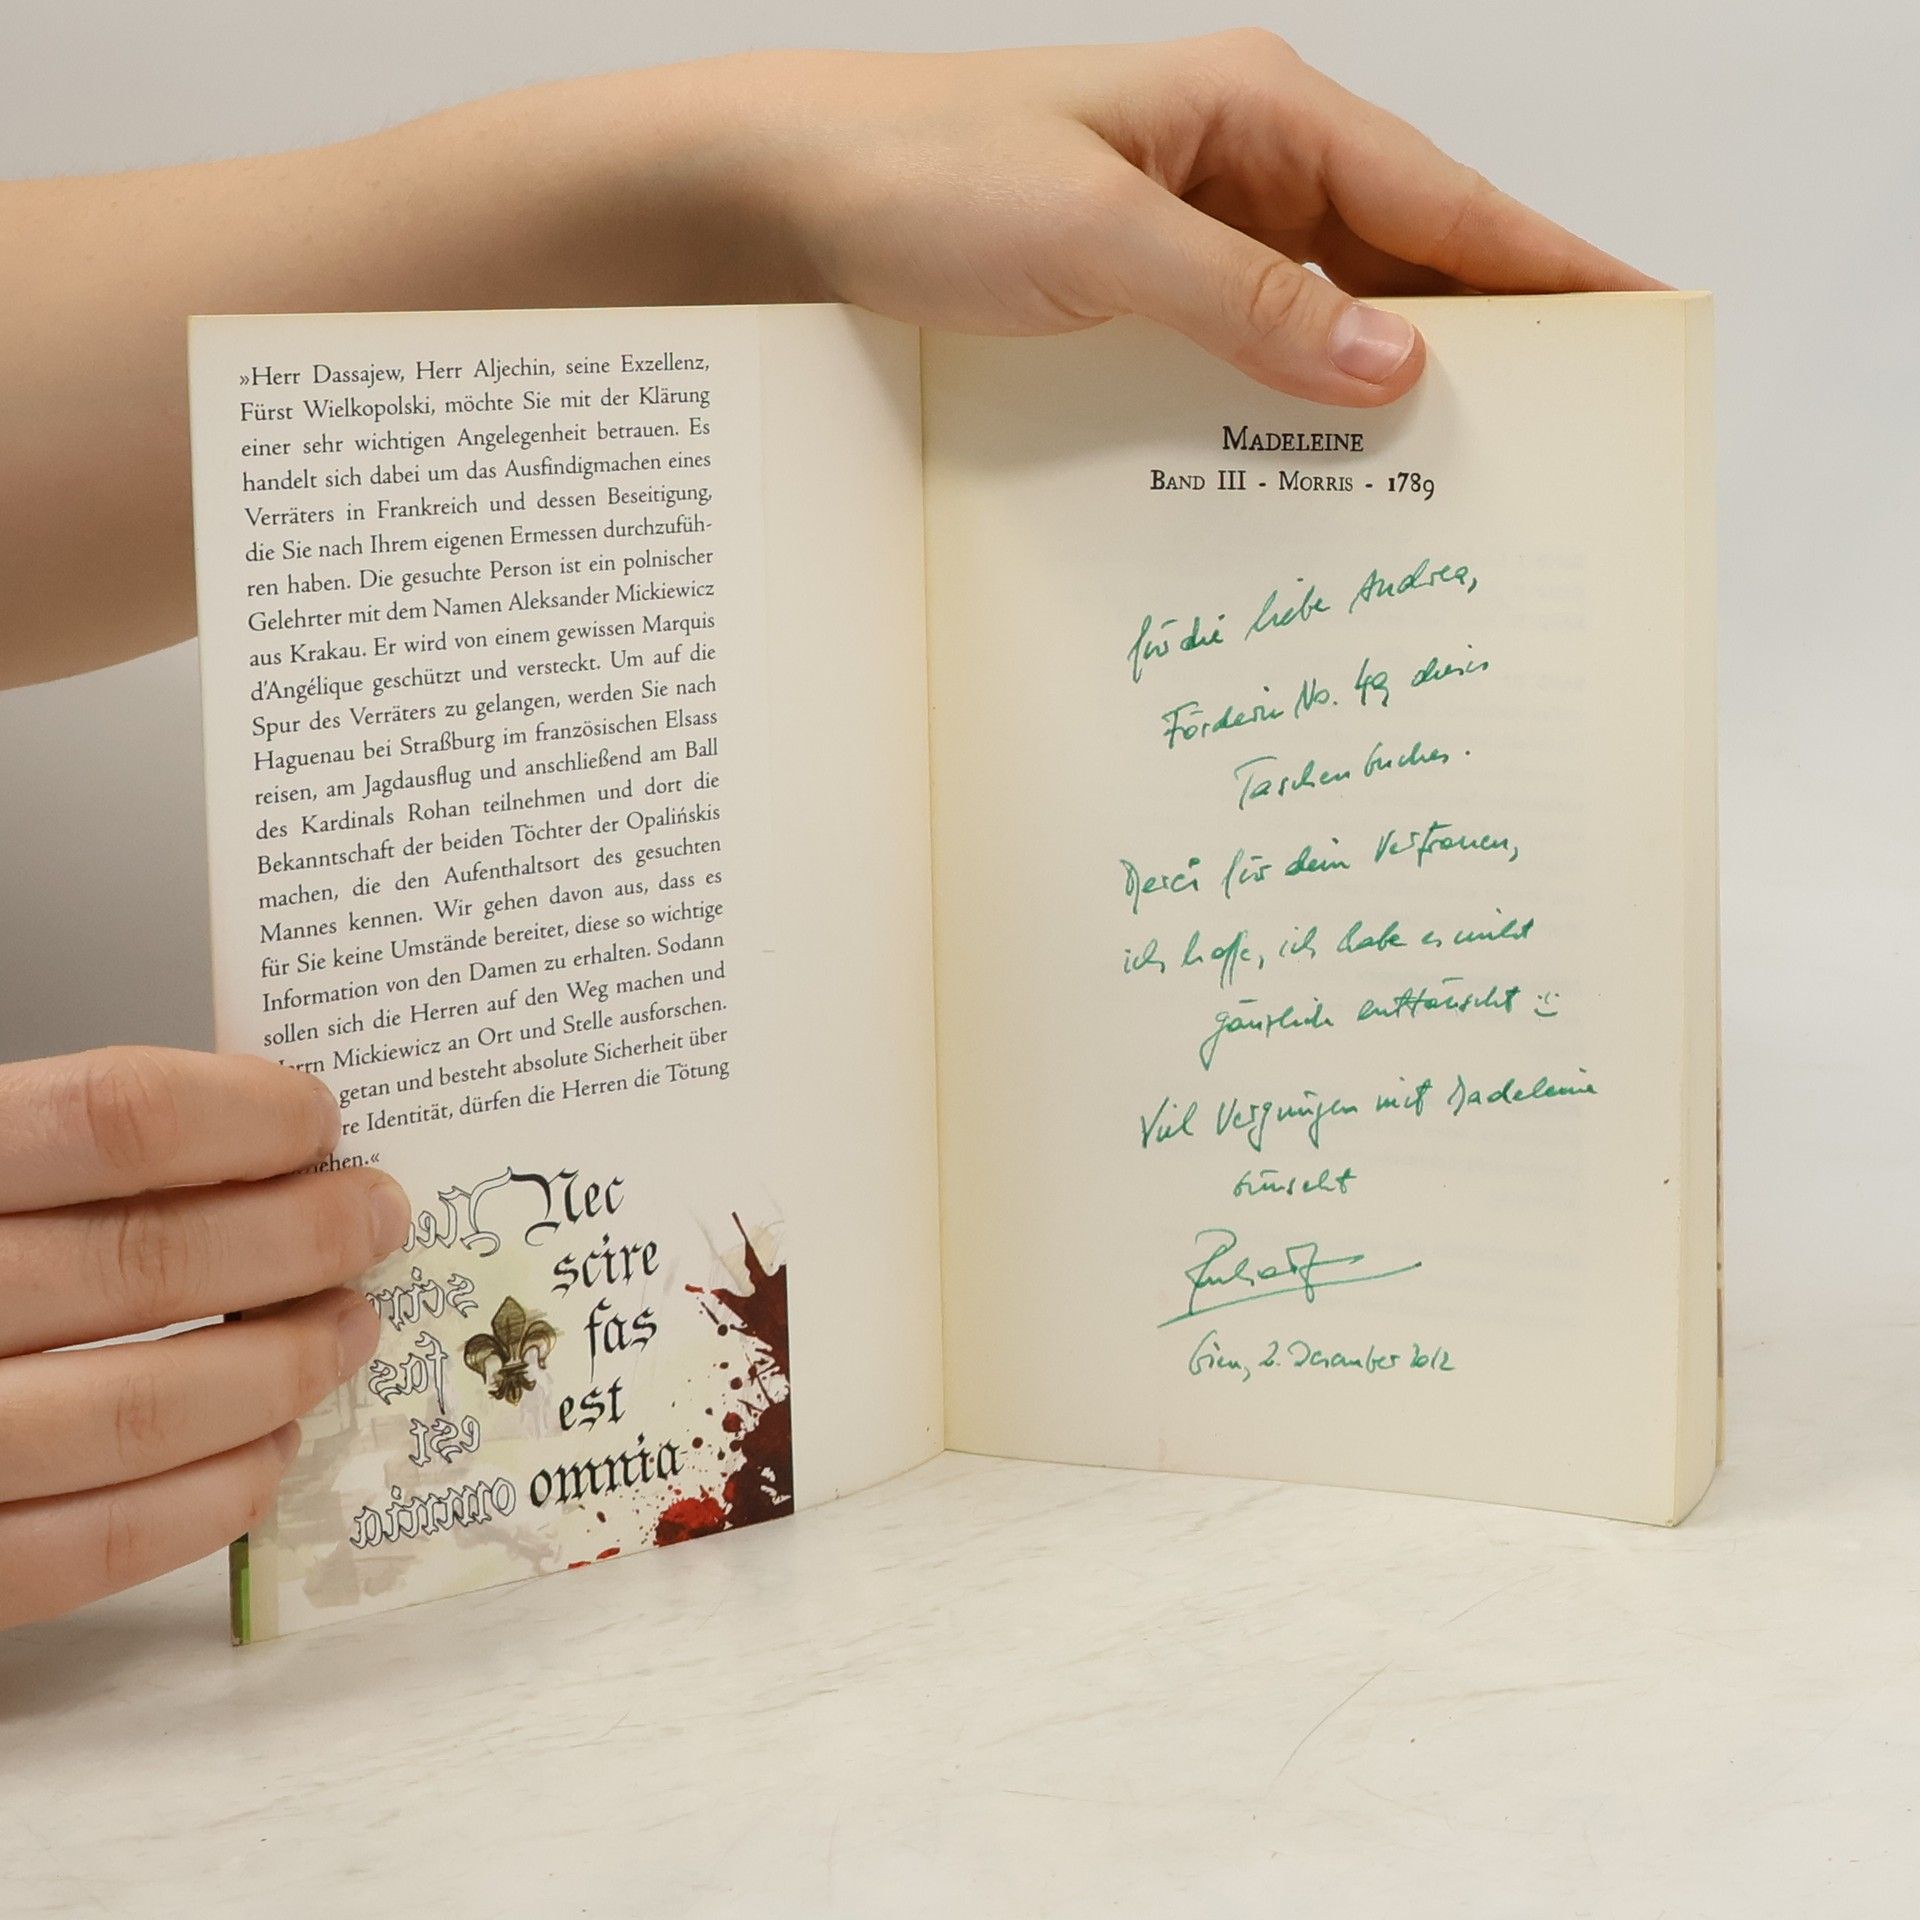 »Herr Dassajew, Herr Aljechin, seine Exzellenz,
Fürst Wielkopolski, möchte Sie mit der Klärung
einer sehr wichtigen Angelegenheit betrauen. Es
handelt sich dabei um das Ausfindigmachen eines
Verräters in Frankreich und dessen Beseitigung,
die Sie nach Ihrem eigenen Ermessen durchzufüh-
ren haben. Die gesuchte Person ist ein polnischer
Gelehrter mit dem Namen Aleksander Mickiewicz
aus Krakau. Er wird von einem gewissen Marquis
d'Angélique geschützt und versteckt. Um auf die
Spur des Verräters zu gelangen, werden Sie nach
Haguenau bei Straßburg im französischen Elsass
reisen, am Jagdausflug und anschließend am Ball
des Kardinals Rohan teilnehmen und dort die
Bekanntschaft der beiden Töchter der Opalińskis
machen, die den Aufenthaltsort des gesuchten
Mannes kennen. Wir gehen davon aus, dass es
für Sie keine Umstände bereitet, diese so wichtige
Information von den Damen zu erhalten. Sodann
sollen sich die Herren auf den Weg machen und
Herrn Mickiewicz an Ort und Stelle ausforschen.
getan und besteht absolute Sicherheit über
re Identität, dürfen die Herren die Tötung
ehen.«
Nec
scire
fas
est
omnia
Nec
scire
fas
est
omnia
MADELEINE
BAND III - MORRIS - 1789
für die liebe Andrea,
Förderin No. 49 dieses
Taschenbuches.
Merci für dein Vertrauen,
ich hoffe, ich habe es nicht
gänzlich enttäuscht :-)
Viel Vergnügen mit Madeleine
wünscht
Wien, 2. Dezember 2012